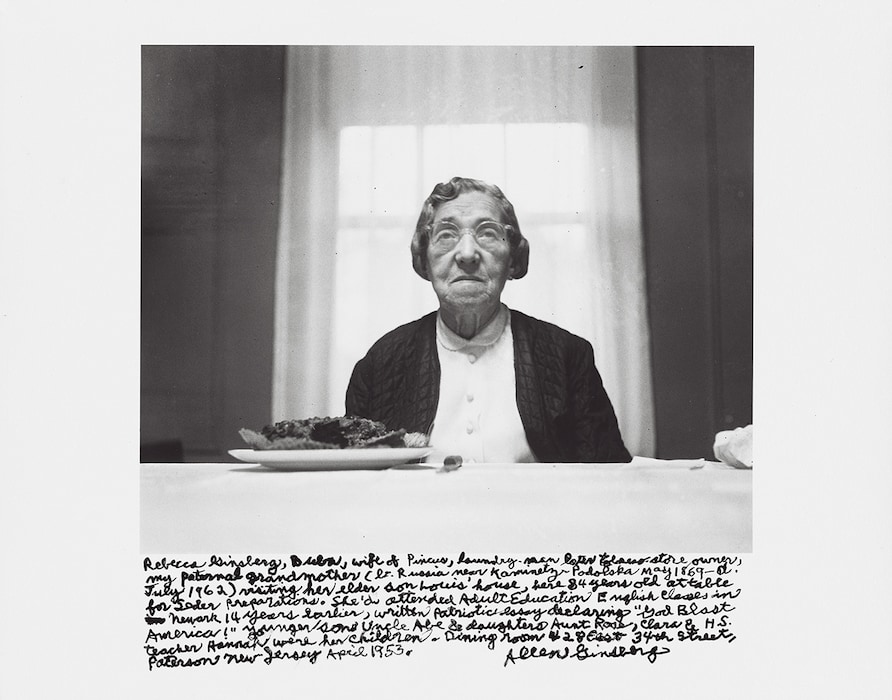 Rebecca Ginsberg, Buba, wife of Pincus, laundry-man later tobacco-store owner,
my paternal grandmother (b. Russia near Kaminetz-Podolska May 1869–d.
July 1962) visiting her elder son Louis' house, here 84 years old at table
for Seder preparations. She'd attended Adult Education English Classes in
Newark 14 years earlier, written Patriotic essay declaring "God Blast
America!" Younger son Uncle Abe & daughters Aunt Rose, Clara & H.S.
teacher Hannah were her children. Dining room # 288 East 34th Street,
Paterson New Jersey April 1953.
Allen Ginsberg